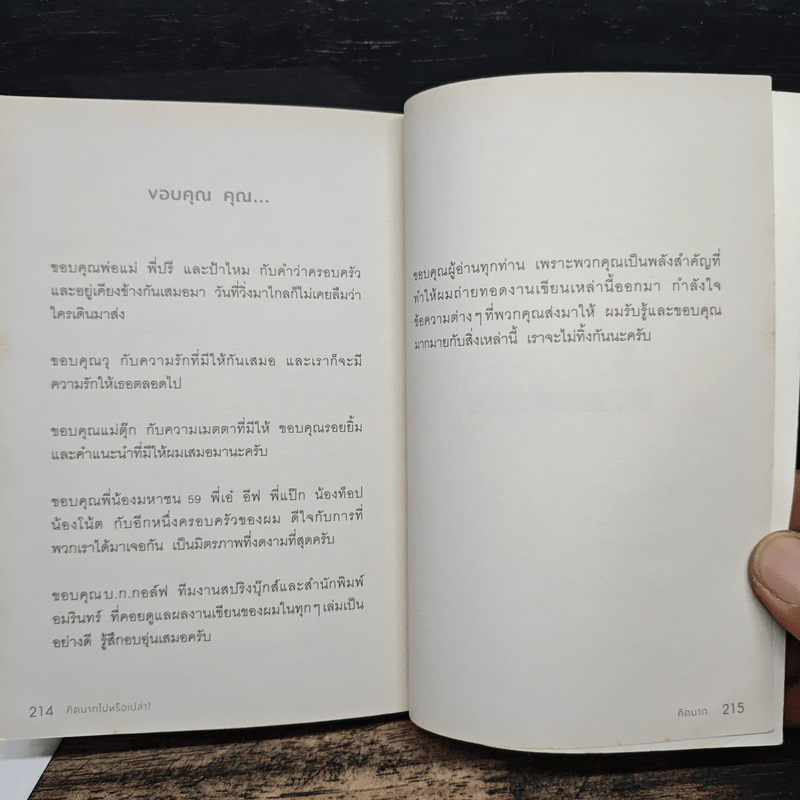 ขอบคุณ คุณ...
ขอบคุณพ่อแม่ พี่ปรี และป้าไหม กับคำว่าครอบครัว
และอยู่เคียงข้างกันเสมอมา วันที่วิ่งมาไกลก็ไม่เคยลืมว่า
ใครเดินมาส่ง
ขอบคุณวุ กับความรักที่มีให้กันเสมอ และเราก็จะมี
ความรักให้เธอตลอดไป
ขอบคุณแม่ตุ๊ก กับความเมตตาที่มีให้ ขอบคุณรอยยิ้ม
และคำแนะนำที่มีให้ผมเสมอมานะครับ
ขอบคุณพี่น้องมหาชน 59 พี่เอ๋ อีฟ พี่แป๊ก น้องท็อป
น้องโน้ต กับอีกหนึ่งครอบครัวของผม ดีใจกับการที่
พวกเราได้มาเจอกัน เป็นมิตรภาพที่งดงามที่สุดครับ
ขอบคุณ บ.ก.กอล์ฟ ทีมงานสปริงบุ๊กส์และสำนักพิมพ์
อมรินทร์ ที่คอยดูแลผลงานเขียนของผมในทุกๆ เล่มเป็น
อย่างดี รู้สึกอบอุ่นเสมอครับ
214 คิดมากไปหรือเปล่า?
ขอบคุณผู้อ่านทุกท่าน เพราะพวกคุณเป็นพลังสำคัญที่
ทำให้ผมถ่ายทอดงานเขียนเหล่านี้ออกมา กำลังใจ
ข้อความต่างๆ ที่พวกคุณส่งมาให้ ผมรับรู้และขอบคุณ
มากมายกับสิ่งเหล่านี้ เราจะไม่ทิ้งกันนะครับ
คิดมาก 215